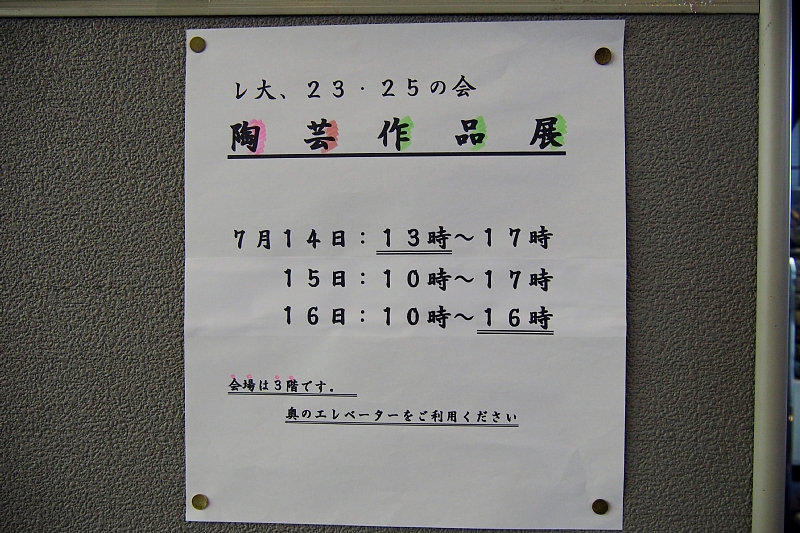 レ大、２３・２５の会
陶芸作品展
７月１４日：１３時～１７時
１５日：１０時～１７時
１６日：１０時～１６時
会場は３階です。
奥のエレベーターをご利用ください